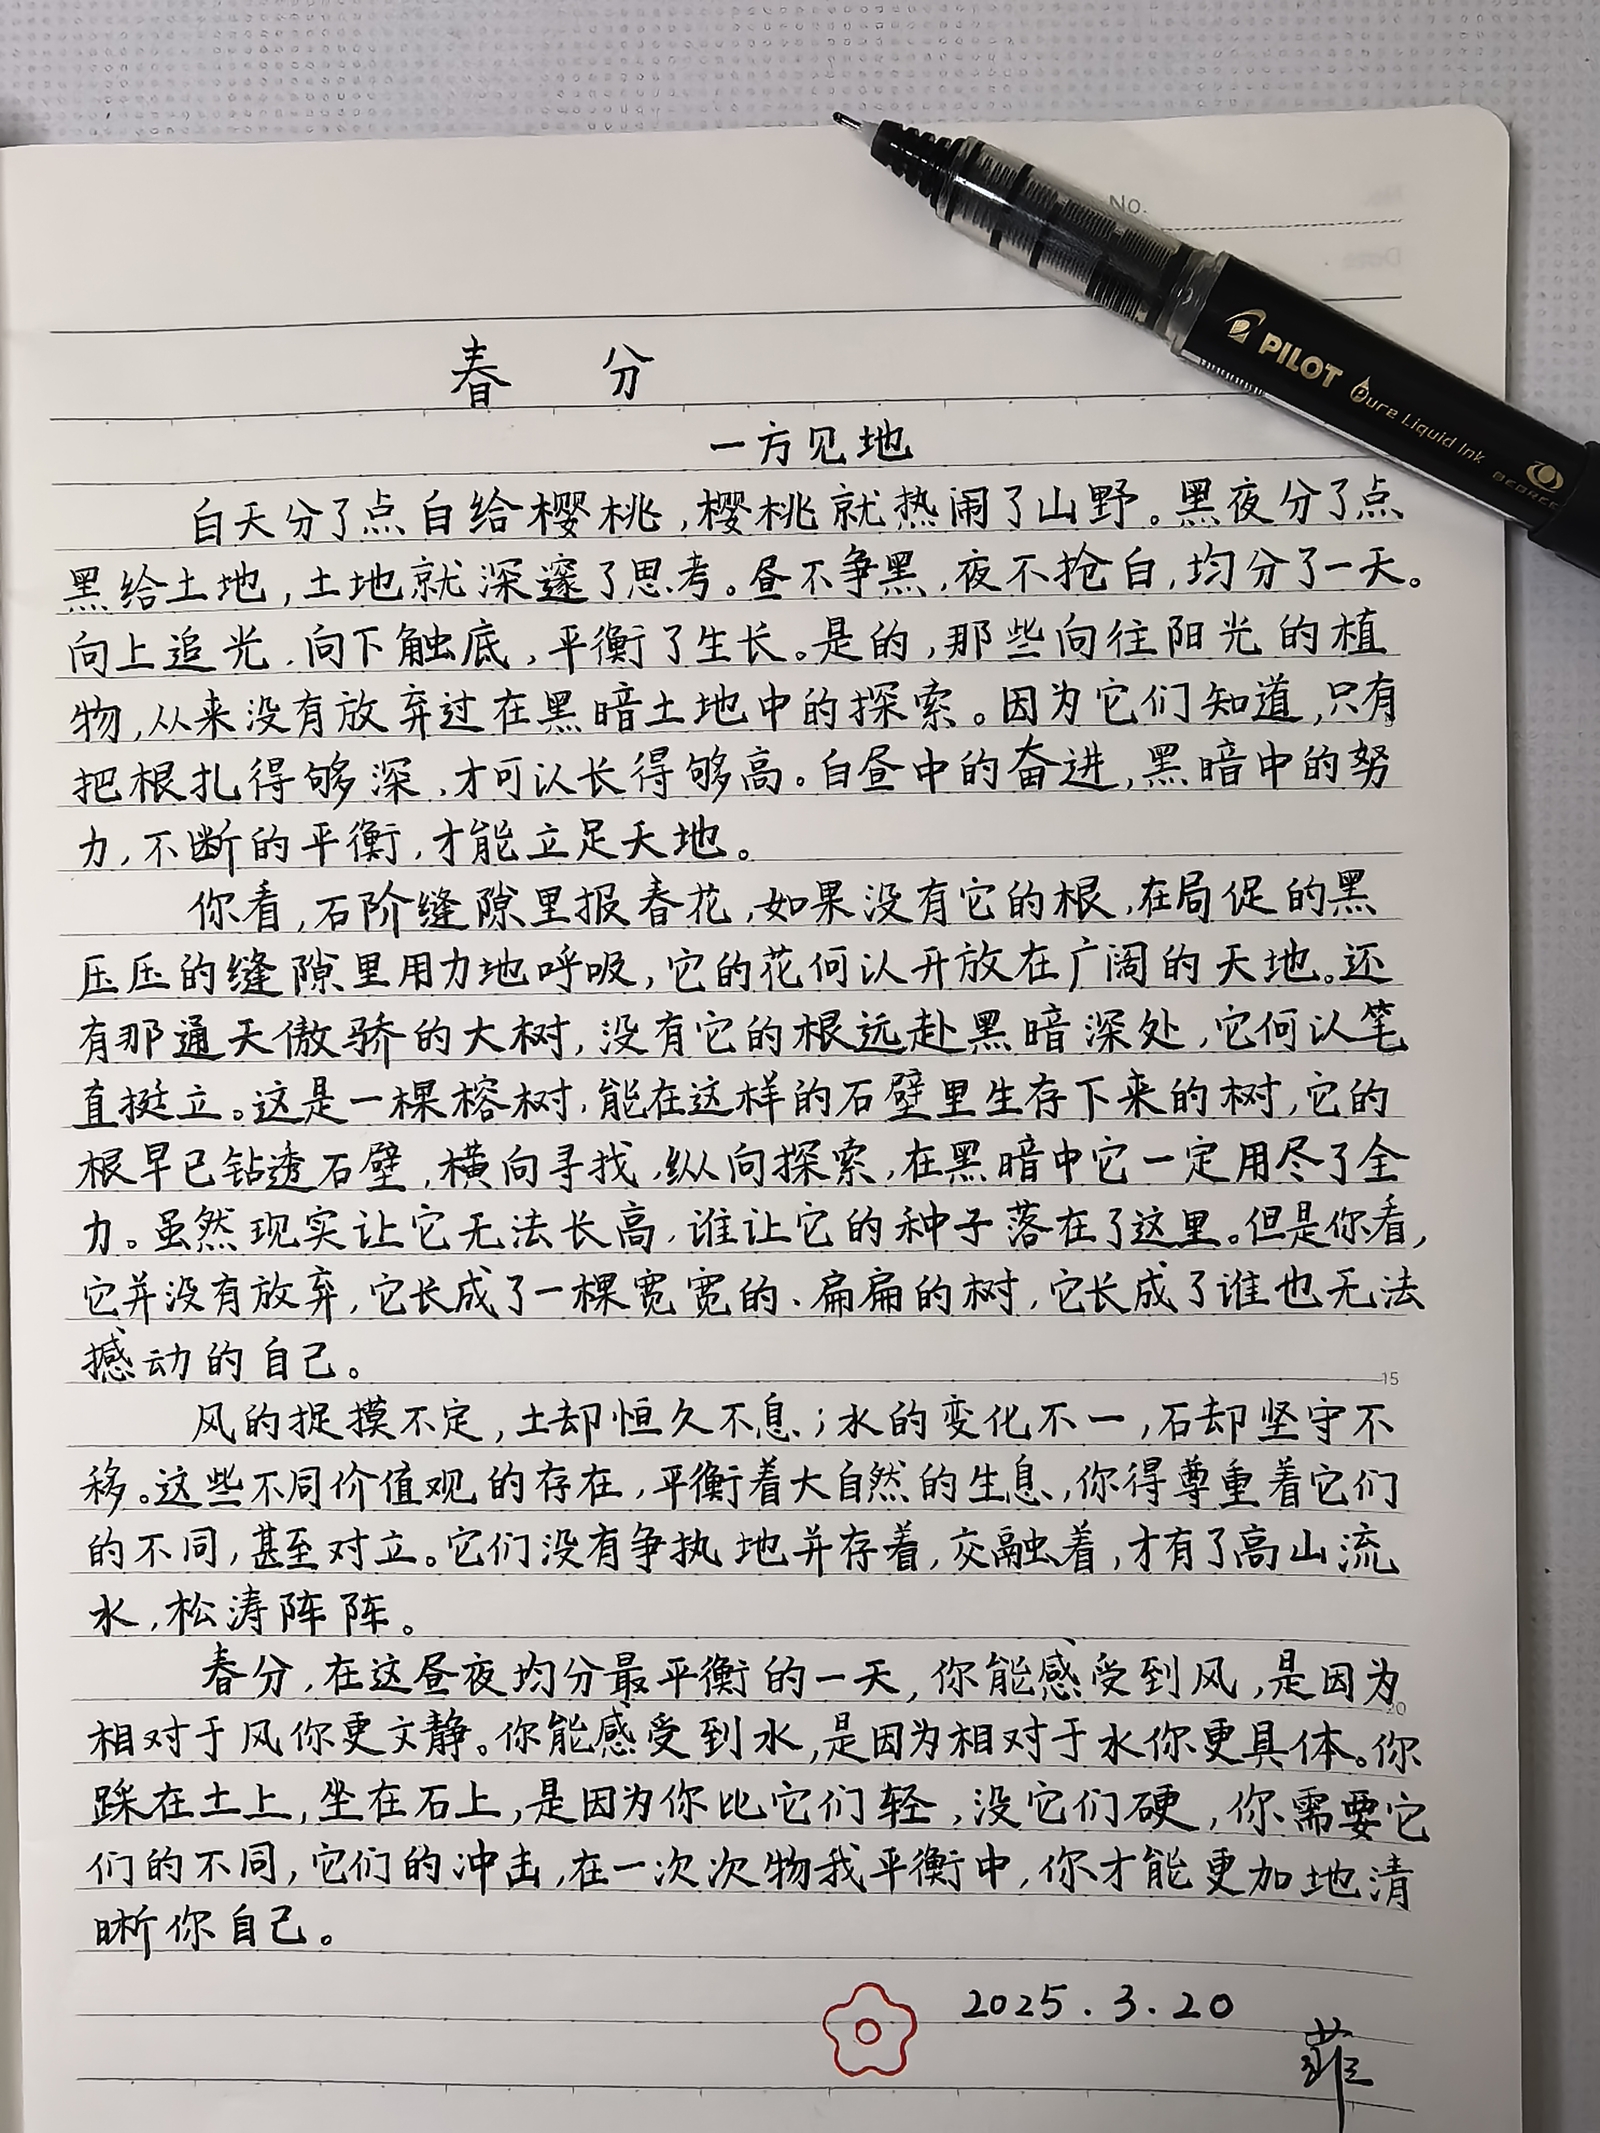 No.
PILOT Pure Liquid Ink
BEGREEN
春 分
一方见地
白天分了点白给樱桃,樱桃就热闹了山野。黑夜分了点
黑给土地,土地就深邃了思考。昼不争黑,夜不抢白,均分了一天。
向上追光,向下触底,平衡了生长。是的,那些向往阳光的植
物,从来没有放弃过在黑暗土地中的探索。因为它们知道,只有
把根扎得够深,才可以长得够高。白昼中的奋进,黑暗中的努
力,不断的平衡,才能立足天地。
你看,石阶缝隙里报春花,如果没有它的根,在局促的黑
压压的缝隙里用力地呼吸,它的花何以开放在广阔的天地。还
有那通天傲骄的大树,没有它的根远赴黑暗深处,它何以笔
直挺立。这是一棵榕树,能在这样的石壁里生存下来的树,它的
根早已钻透石壁,横向寻找,纵向探索,在黑暗中它一定用尽了全
力。虽然现实让它无法长高,谁让它的种子落在了这里。但是你看,
它并没有放弃,它长成了一棵宽宽的、扁扁的树,它长成了谁也无法
撼动的自己。
15
风的捉摸不定,土却恒久不息;水的变化不一,石却坚守不
移。这些不同价值观的存在,平衡着大自然的生息,你得尊重着它们
的不同,甚至对立。它们没有争执地并存着,交融着,才有了高山流
水,松涛阵阵。
春分,在这昼夜均分最平衡的一天,你能感受到风,是因为
20
相对于风你更文静。你能感受到水,是因为相对于水你更具体。你
踩在土上,坐在石上,是因为你比它们轻,没它们硬,你需要它
们的不同,它们的冲击,在一次次物我平衡中,你才能更加地清
晰你自己。
2025.3.20
菲